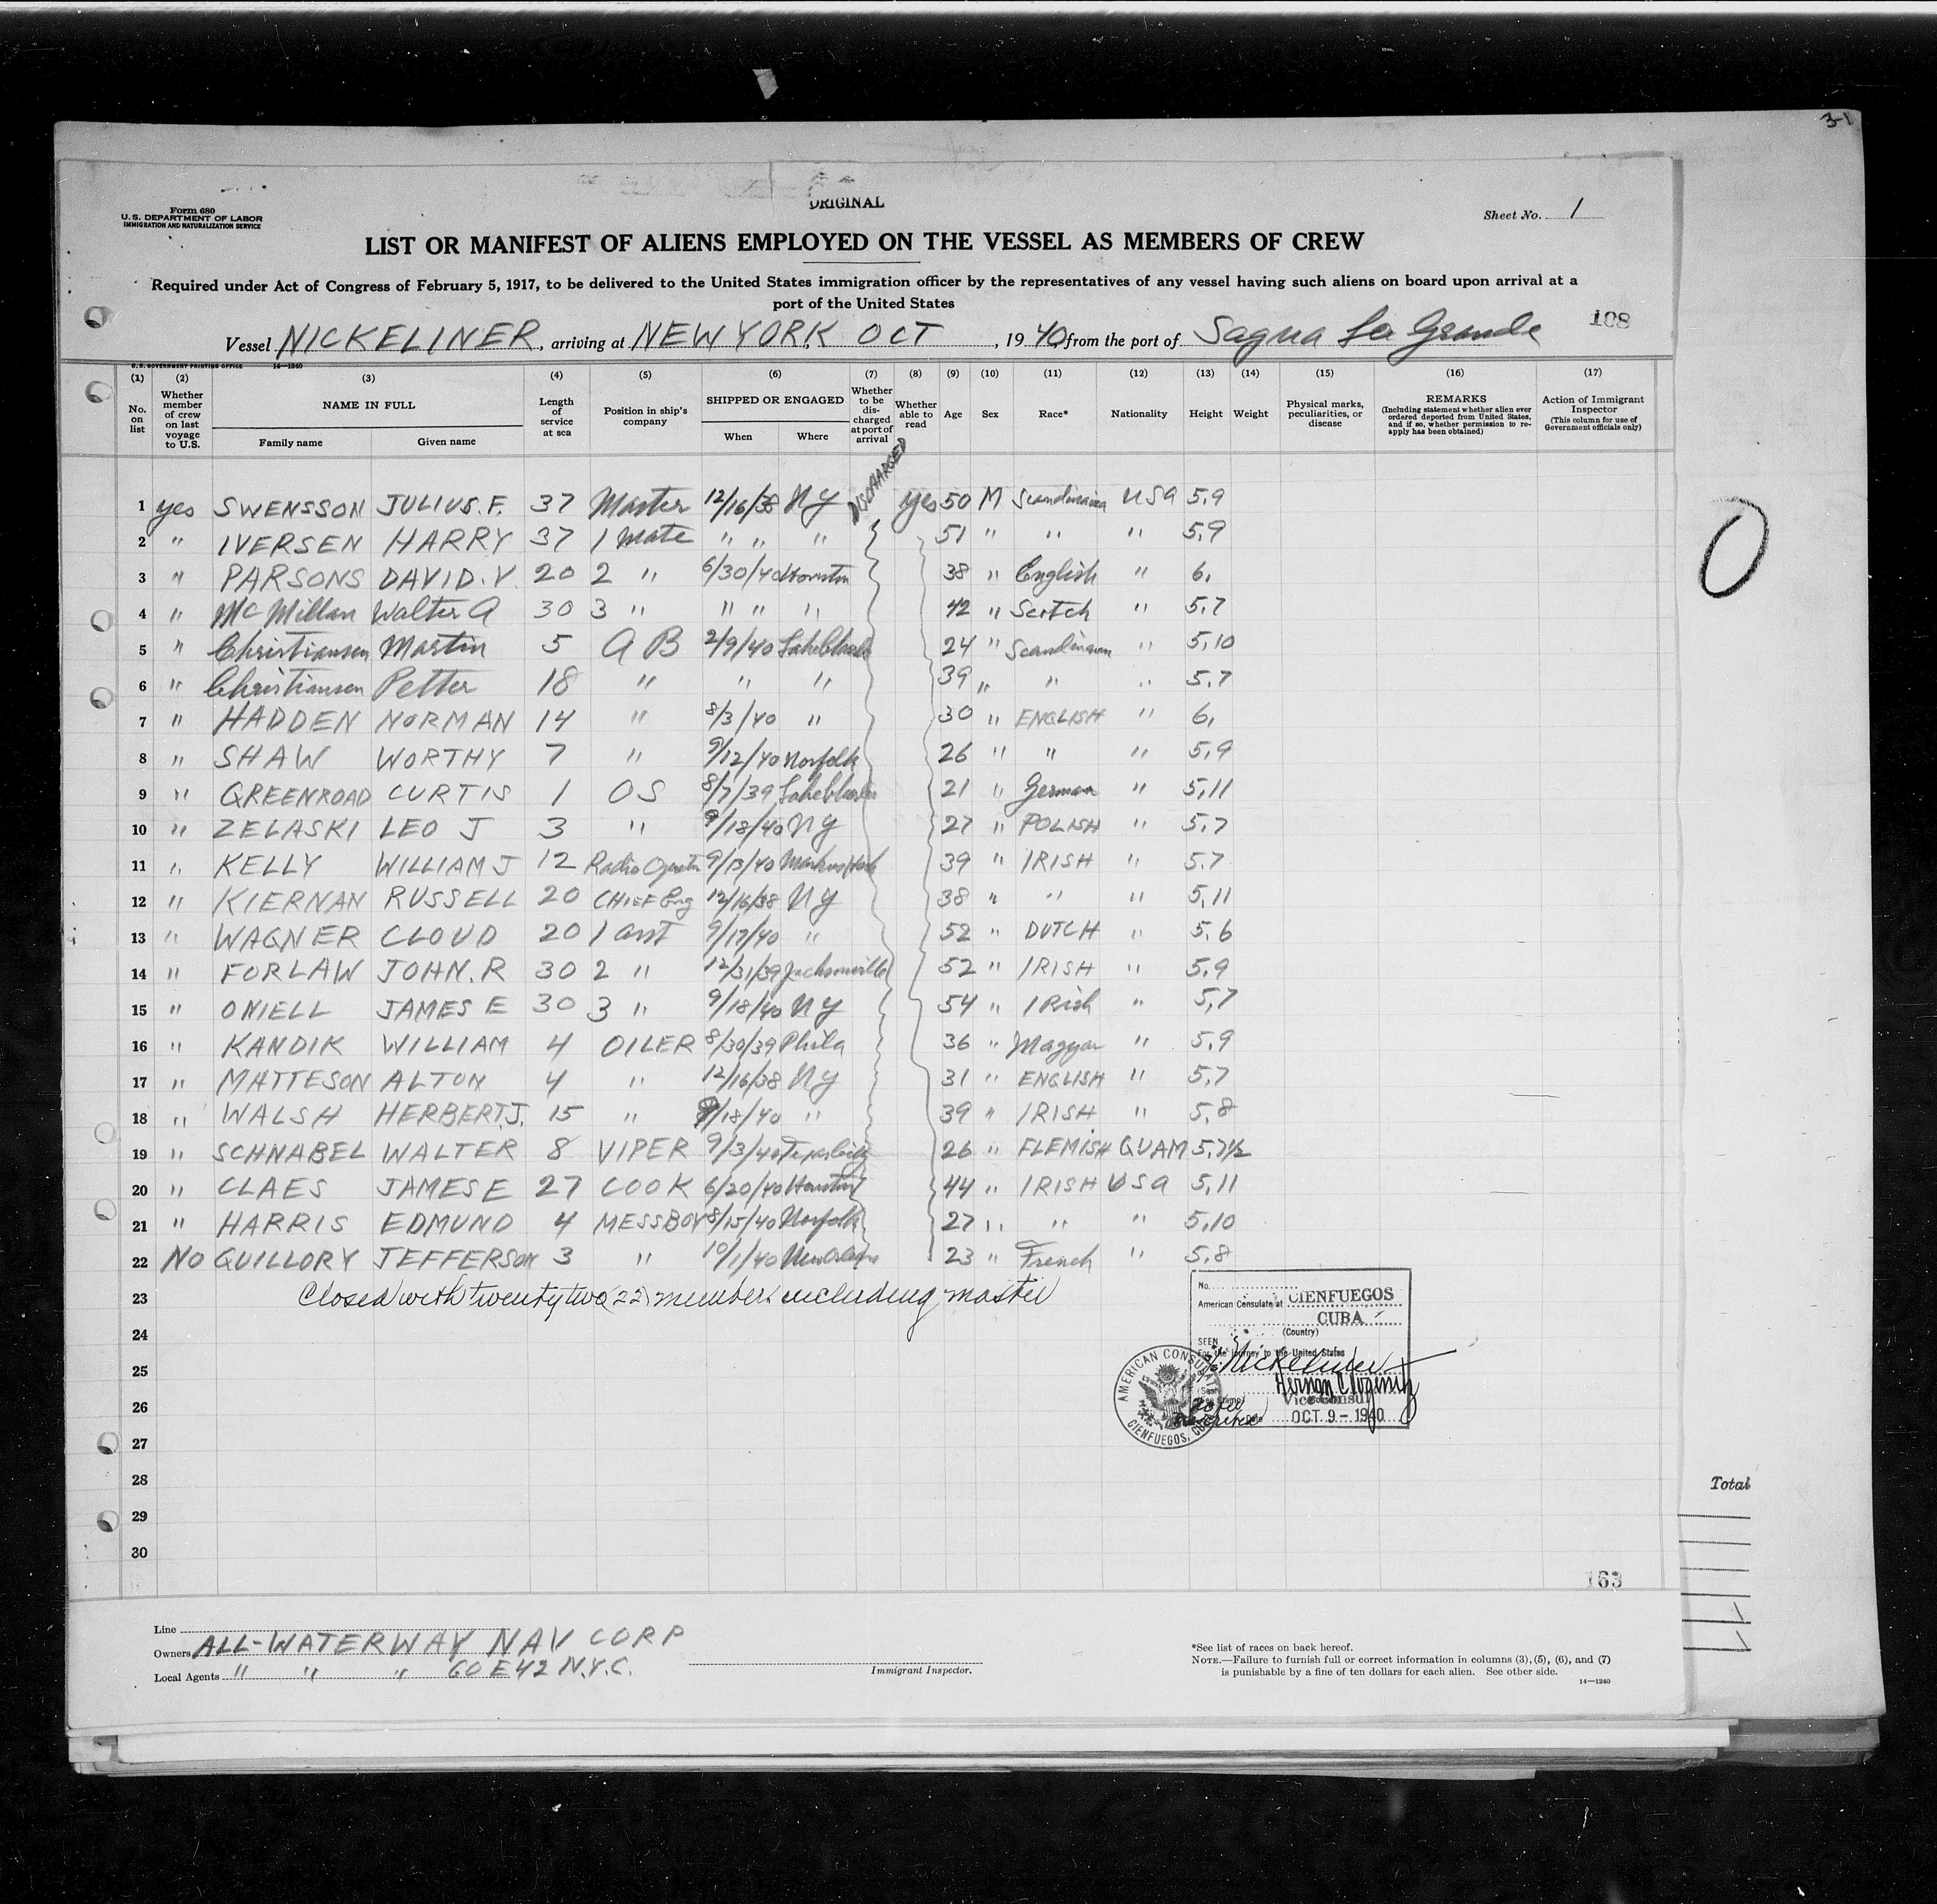 3-1
Form 680
U. S. DEPARTMENT OF LABOR
IMMIGRATION AND NATURALIZATION SERVICE
ORIGINAL
Sheet No. 1
LIST OR MANIFEST OF ALIENS EMPLOYED ON THE VESSEL AS MEMBERS OF CREW
Required under Act of Congress of February 5, 1917, to be delivered to the United States immigration officer by the representatives of any vessel having such aliens on board upon arrival at a
port of the United States
108
Vessel NICKELINER, arriving at NEW YORK, OCT, 1940, from the port of Sagua La Grande
U. S. GOVERNMENT PRINTING OFFICE 14—1240
(1) (2) (3) (4) (5) (6) (7) (8) (9) (10) (11) (12) (13) (14) (15) (16) (17)
No. on list
Whether member of crew on last voyage to U.S.
NAME IN FULL
Family name Given name
Length of service at sea
Position in ship's company
SHIPPED OR ENGAGED
When Where
Whether to be discharged at port of arrival
Whether able to read
Age
Sex
Race*
Nationality
Height
Weight
Physical marks, peculiarities, or disease
REMARKS
(Including statement whether alien ever ordered deported from United States, and if so, whether permission to reapply has been obtained)
Action of Immigrant Inspector
(This column for use of Government officials only)
DISCHARGED
1 yes SWENSSON JULIUS. F. 37 Master 12/16/38 NY yes 50 M Scandinavian USA 5,9
2 " IVERSEN HARRY 37 1 Mate " " " 51 " " " 5,9
3 " PARSONS DAVID. V. 20 2 " 6/30/40 Houston 38 " English " 6,
4 " McMillan Walter A 30 3 " " " " 42 " Scotch " 5,7
5 " Christiansen Martin 5 A B 2/9/40 Lake Charles 24 " Scandinavian " 5,10
6 " Christiansen Petter 18 " " " 39 " " " 5,7
7 " HADDEN NORMAN 14 " 8/3/40 " 30 " ENGLISH " 6,
8 " SHAW WORTHY 7 " 9/12/40 Norfolk 26 " " " 5,9
9 " GREENROAD CURTIS 1 OS 8/7/39 Lake Charles 21 " German " 5,11
10 " ZELASKI LEO J 3 " 9/18/40 NY 27 " POLISH " 5,7
11 " KELLY WILLIAM J 12 Radio Operator 9/13/40 Marcus Hook 39 " IRISH " 5,7
12 " KIERNAN RUSSELL 20 CHIEF Eng 12/16/38 NY 38 " " " 5,11
13 " WAGNER CLOUD 20 1 asst 9/17/40 " 52 " DUTCH " 5,6
14 " FORLAW JOHN. R 30 2 " 12/31/39 Jacksonville 52 " IRISH " 5,9
15 " ONIELL JAMES E 30 3 " 9/18/40 NY 54 " IRish " 5,7
16 " KANDIK WILLIAM 4 OILER 8/30/39 Phila 36 " Magyar " 5,9
17 " MATTESON ALTON 4 " 12/16/38 NY 31 " ENGLISH " 5,7
18 " WALSH HERBERT J. 15 " 9/18/40 " 39 " IRISH " 5,8
19 " SCHNABEL WALTER 8 VIPER 9/3/40 Texas City 26 " FLEMISH GUAM 5,7½
20 " CLAES JAMES E 27 COOK 6/20/40 Houston 44 " IRISH USA 5,11
21 " HARRIS EDMUND 4 MESSBOY 8/15/40 Norfolk 27 " " " 5,10
22 NO GUILLORY JEFFERSON 3 " 10/1/40 New Orleans 23 " French " 5,8
23 Closed with twenty two (22) members including master
24
25
26
27
28
29
30
No.
American Consulate at CIENFUEGOS
CUBA
(Country)
SEEN
For the journey to the United States
Nickeliner
Vice Consul
OCT 9 - 1940
AMERICAN CONSULATE
CIENFUEGOS, CUBA
Total
163
Line
Owners ALL-WATERWAY NAV CORP
Local Agents " " " 60 E 42 N.Y.C.
Immigrant Inspector.
*See list of races on back hereof.
NOTE.—Failure to furnish full or correct information in columns (3), (5), (6), and (7)
is punishable by a fine of ten dollars for each alien. See other side.
14—1240